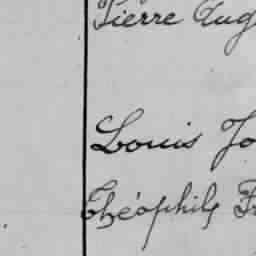 Pierre Aug
Louis Jo
Théophile Fr